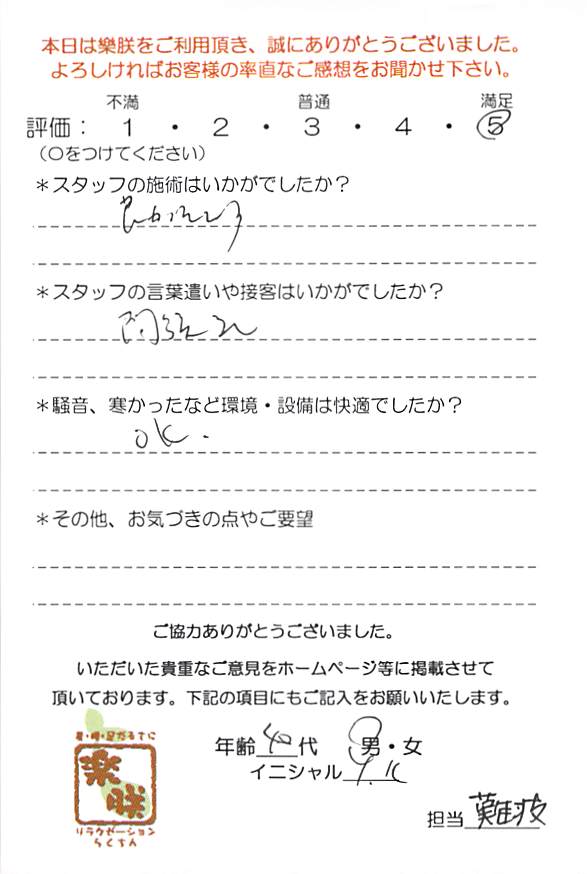 本日は樂朕をご利用頂き、誠にありがとうございました。
よろしければお客様の率直なご感想をお聞かせ下さい。
不満 普通 満足
評価： 1 ・ 2 ・ 3 ・ 4 ・ 5
（○をつけてください）
＊スタッフの施術はいかがでしたか？
＊スタッフの言葉遣いや接客はいかがでしたか？
＊騒音、寒かったなど環境・設備は快適でしたか？
OK.
＊その他、お気づきの点やご要望
ご協力ありがとうございました。
いただいた貴重なご意見をホームページ等に掲載させて
頂いております。下記の項目にもご記入をお願いいたします。
年齢 40 代 男・女
イニシャル
担当 難波
樂朕
リラクゼーション
らくちん